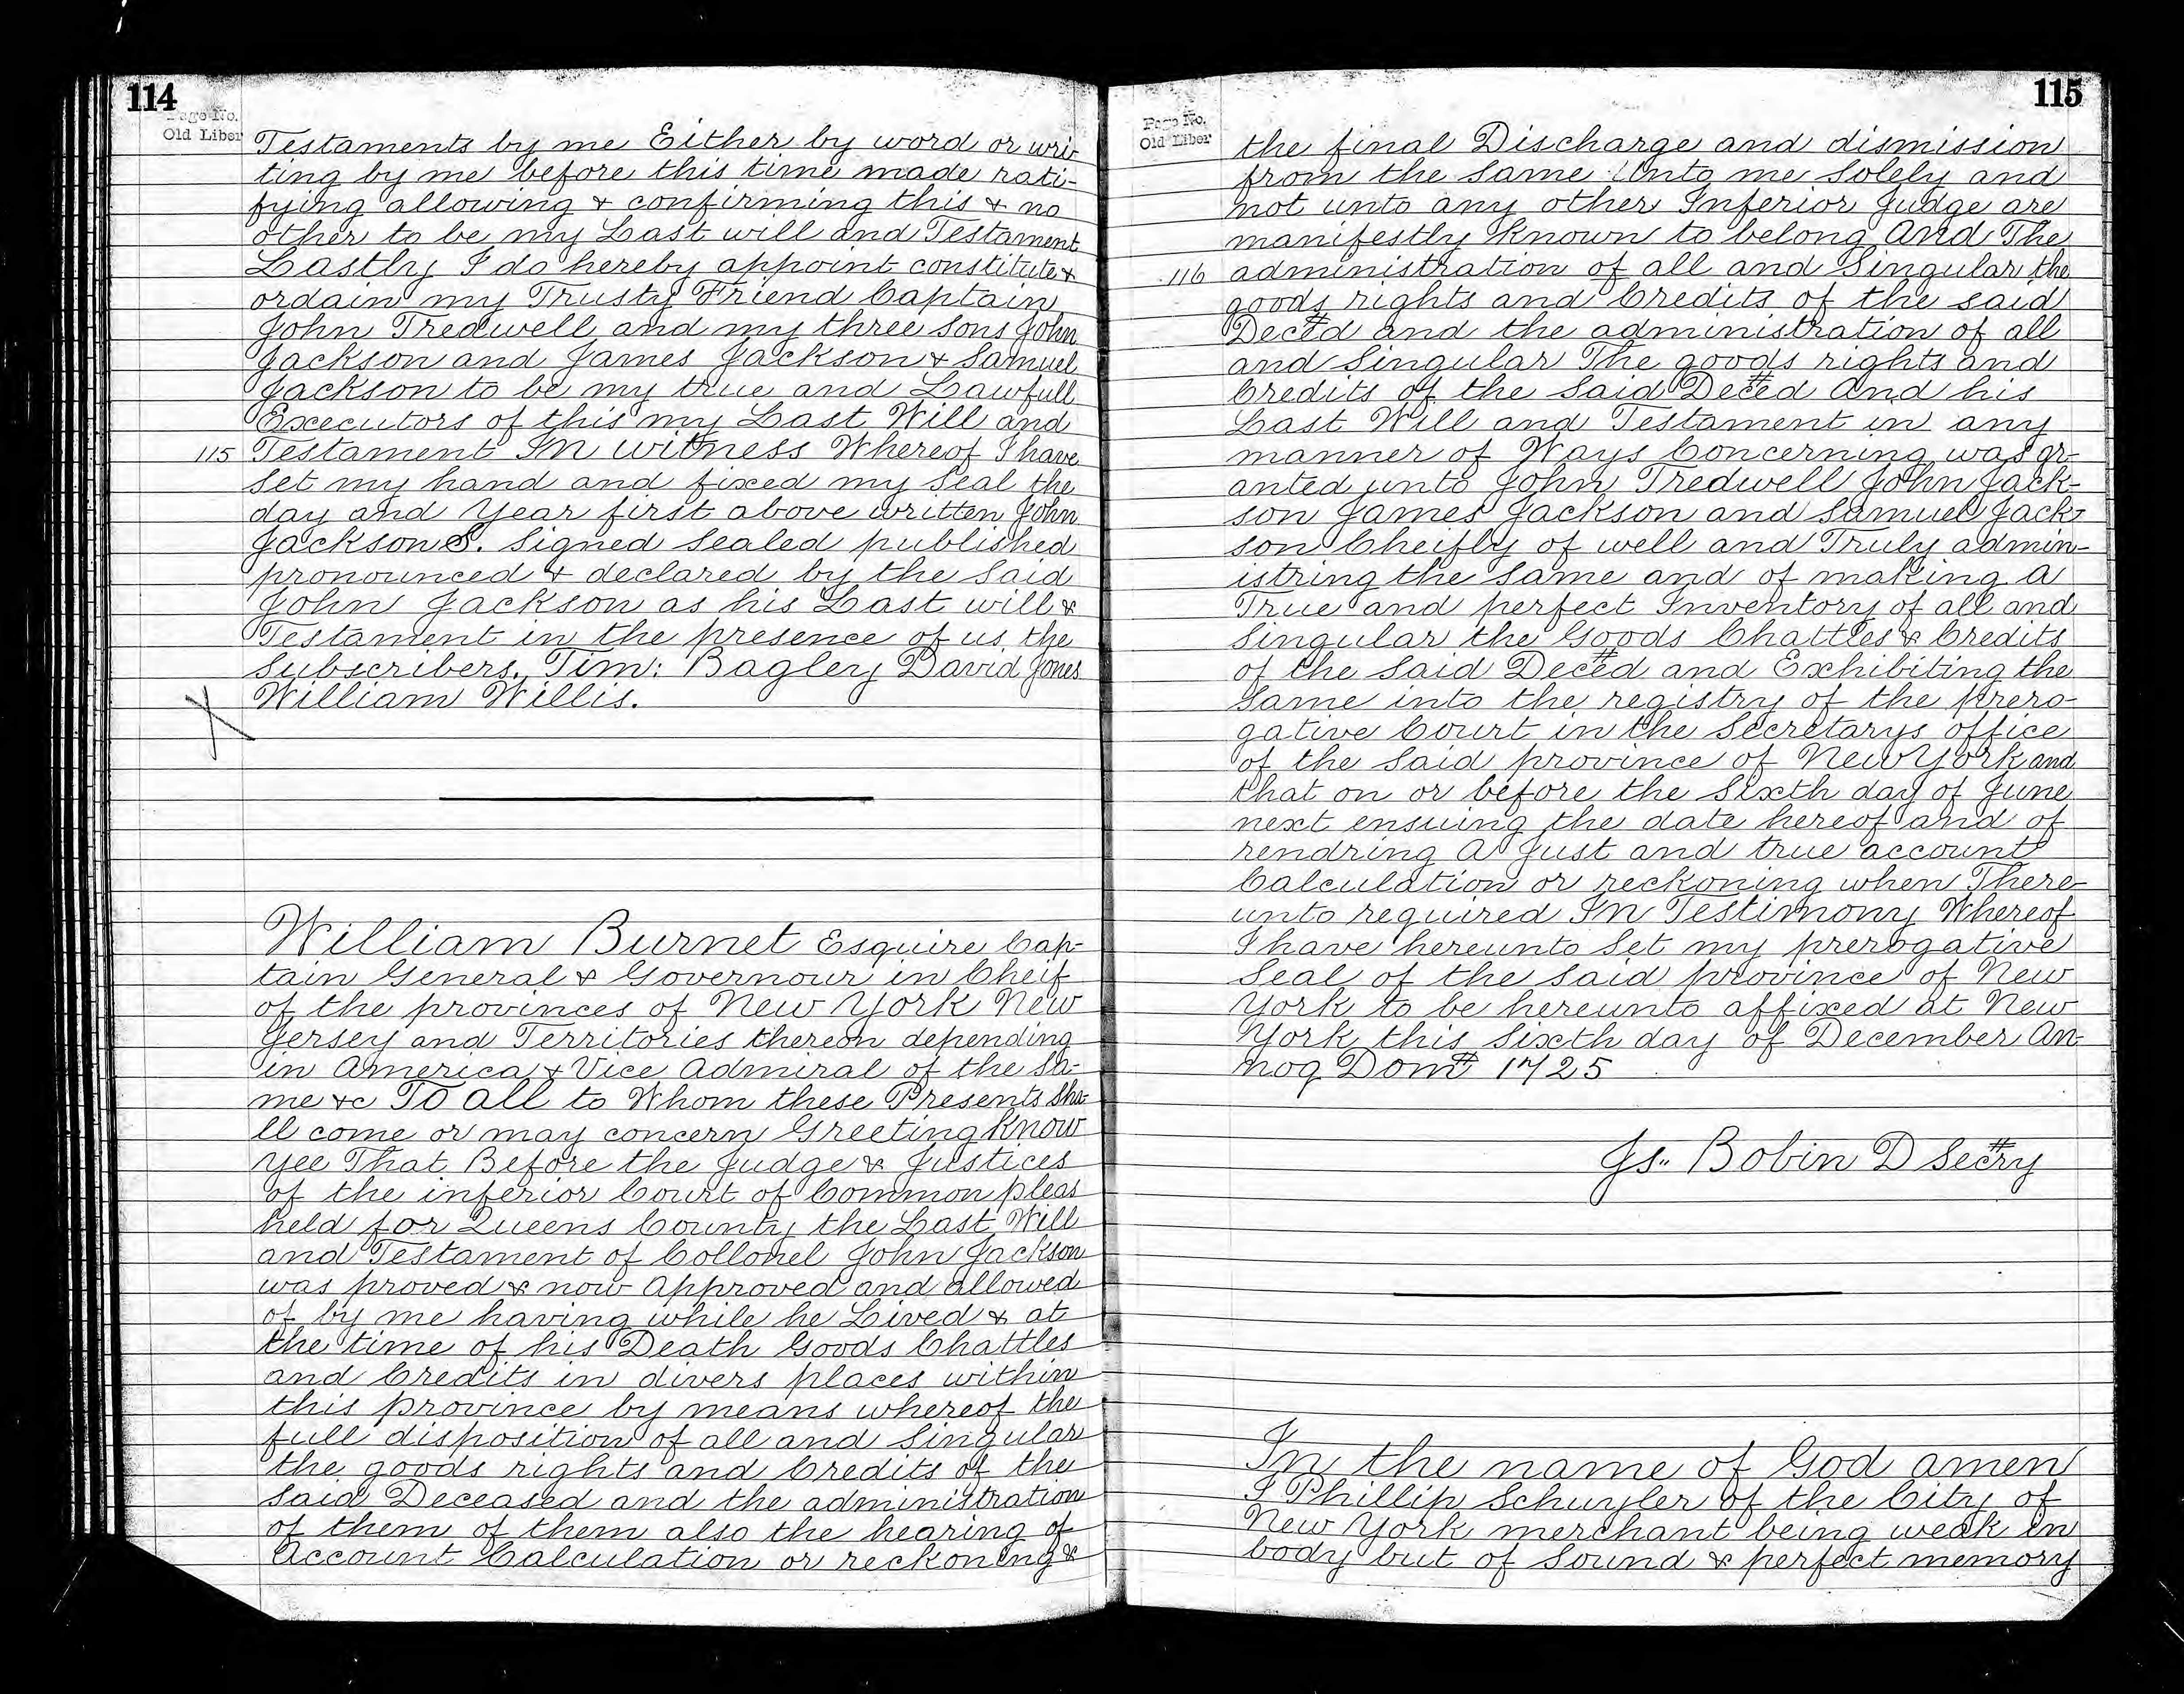 114
Page No.
Old Liber
Testaments by me Either by word or wri-
ting by me before this time made rati-
fying allowing & confirming this & no
other to be my Last will and Testament
Lastly I do hereby appoint constitute &
ordain my Trusty Friend Captain
John Tredwell and my three sons John
Jackson and James Jackson & Samuel
Jackson to be my true and Lawfull
Executors of this my Last Will and
115 Testament In witness Whereof I have
set my hand and fixed my seal the
day and Year first above written John
Jackson S. Signed Sealed published
pronounced & declared by the said
John Jackson as his Last will &
Testament in the presence of us the
subscribers, Tim: Bagley David Jones
William Willis.
X
William Burnet Esquire Cap-
tain General & Governour in Cheif
of the provinces of New York New
Jersey and Territories thereon depending
in America & Vice Admiral of the sa-
me &c To all to Whom these Presents sha-
ll come or may concern Greeting Know
Yee That Before the Judge & Justices
of the inferior Court of Common pleas
held for Queens County the Last Will
and Testament of Collonel John Jackson
was proved & now Approved and allowed
of by me having while he Lived & at
the time of his Death Goods Chattles
and Credits in divers places within
this province by means whereof the
full disposition of all and Singular
the goods rights and Credits of the
said Deceased and the administration
of them of them also the hearing of
Account Calculation or reckoning &
115
Page No.
Old Liber
the final Discharge and dismission
from the same Unto me solely and
not unto any other Inferior Judge are
manifestly known to belong And The
116 administration of all and Singular the
goods rights and Credits of the said
Deced and the administration of all
and Singular The goods rights and
Credits of the said Deced And his
Last Will and Testament in any
manner of Ways Concerning was gr-
anted unto John Tredwell John Jack-
son James Jackson and Samuel Jack-
son Cheifly of well and Truly admin-
istring the same and of making A
True and perfect Inventory of all and
Singular the Goods Chattles & Credits
of the said Deced and Exhibiting the
same into the registry of the prero-
gative Court in the Secretarys office
of the said province of New York and
that on or before the sixth day of June
next ensuing the date hereof and of
rendring A Just and true account
Calculation or reckoning when There-
unto required In Testimony Whereof
I have hereunto set my prerogative
seal of the said province of New
York to be hereunto affixed at New
York this sixth day of December An-
noq Dom 1725
Js.. Bobin D Secry
In the name of God amen
I Phillip Schuyler of the City of
New York merchant being weak in
body but of sound & perfect memory